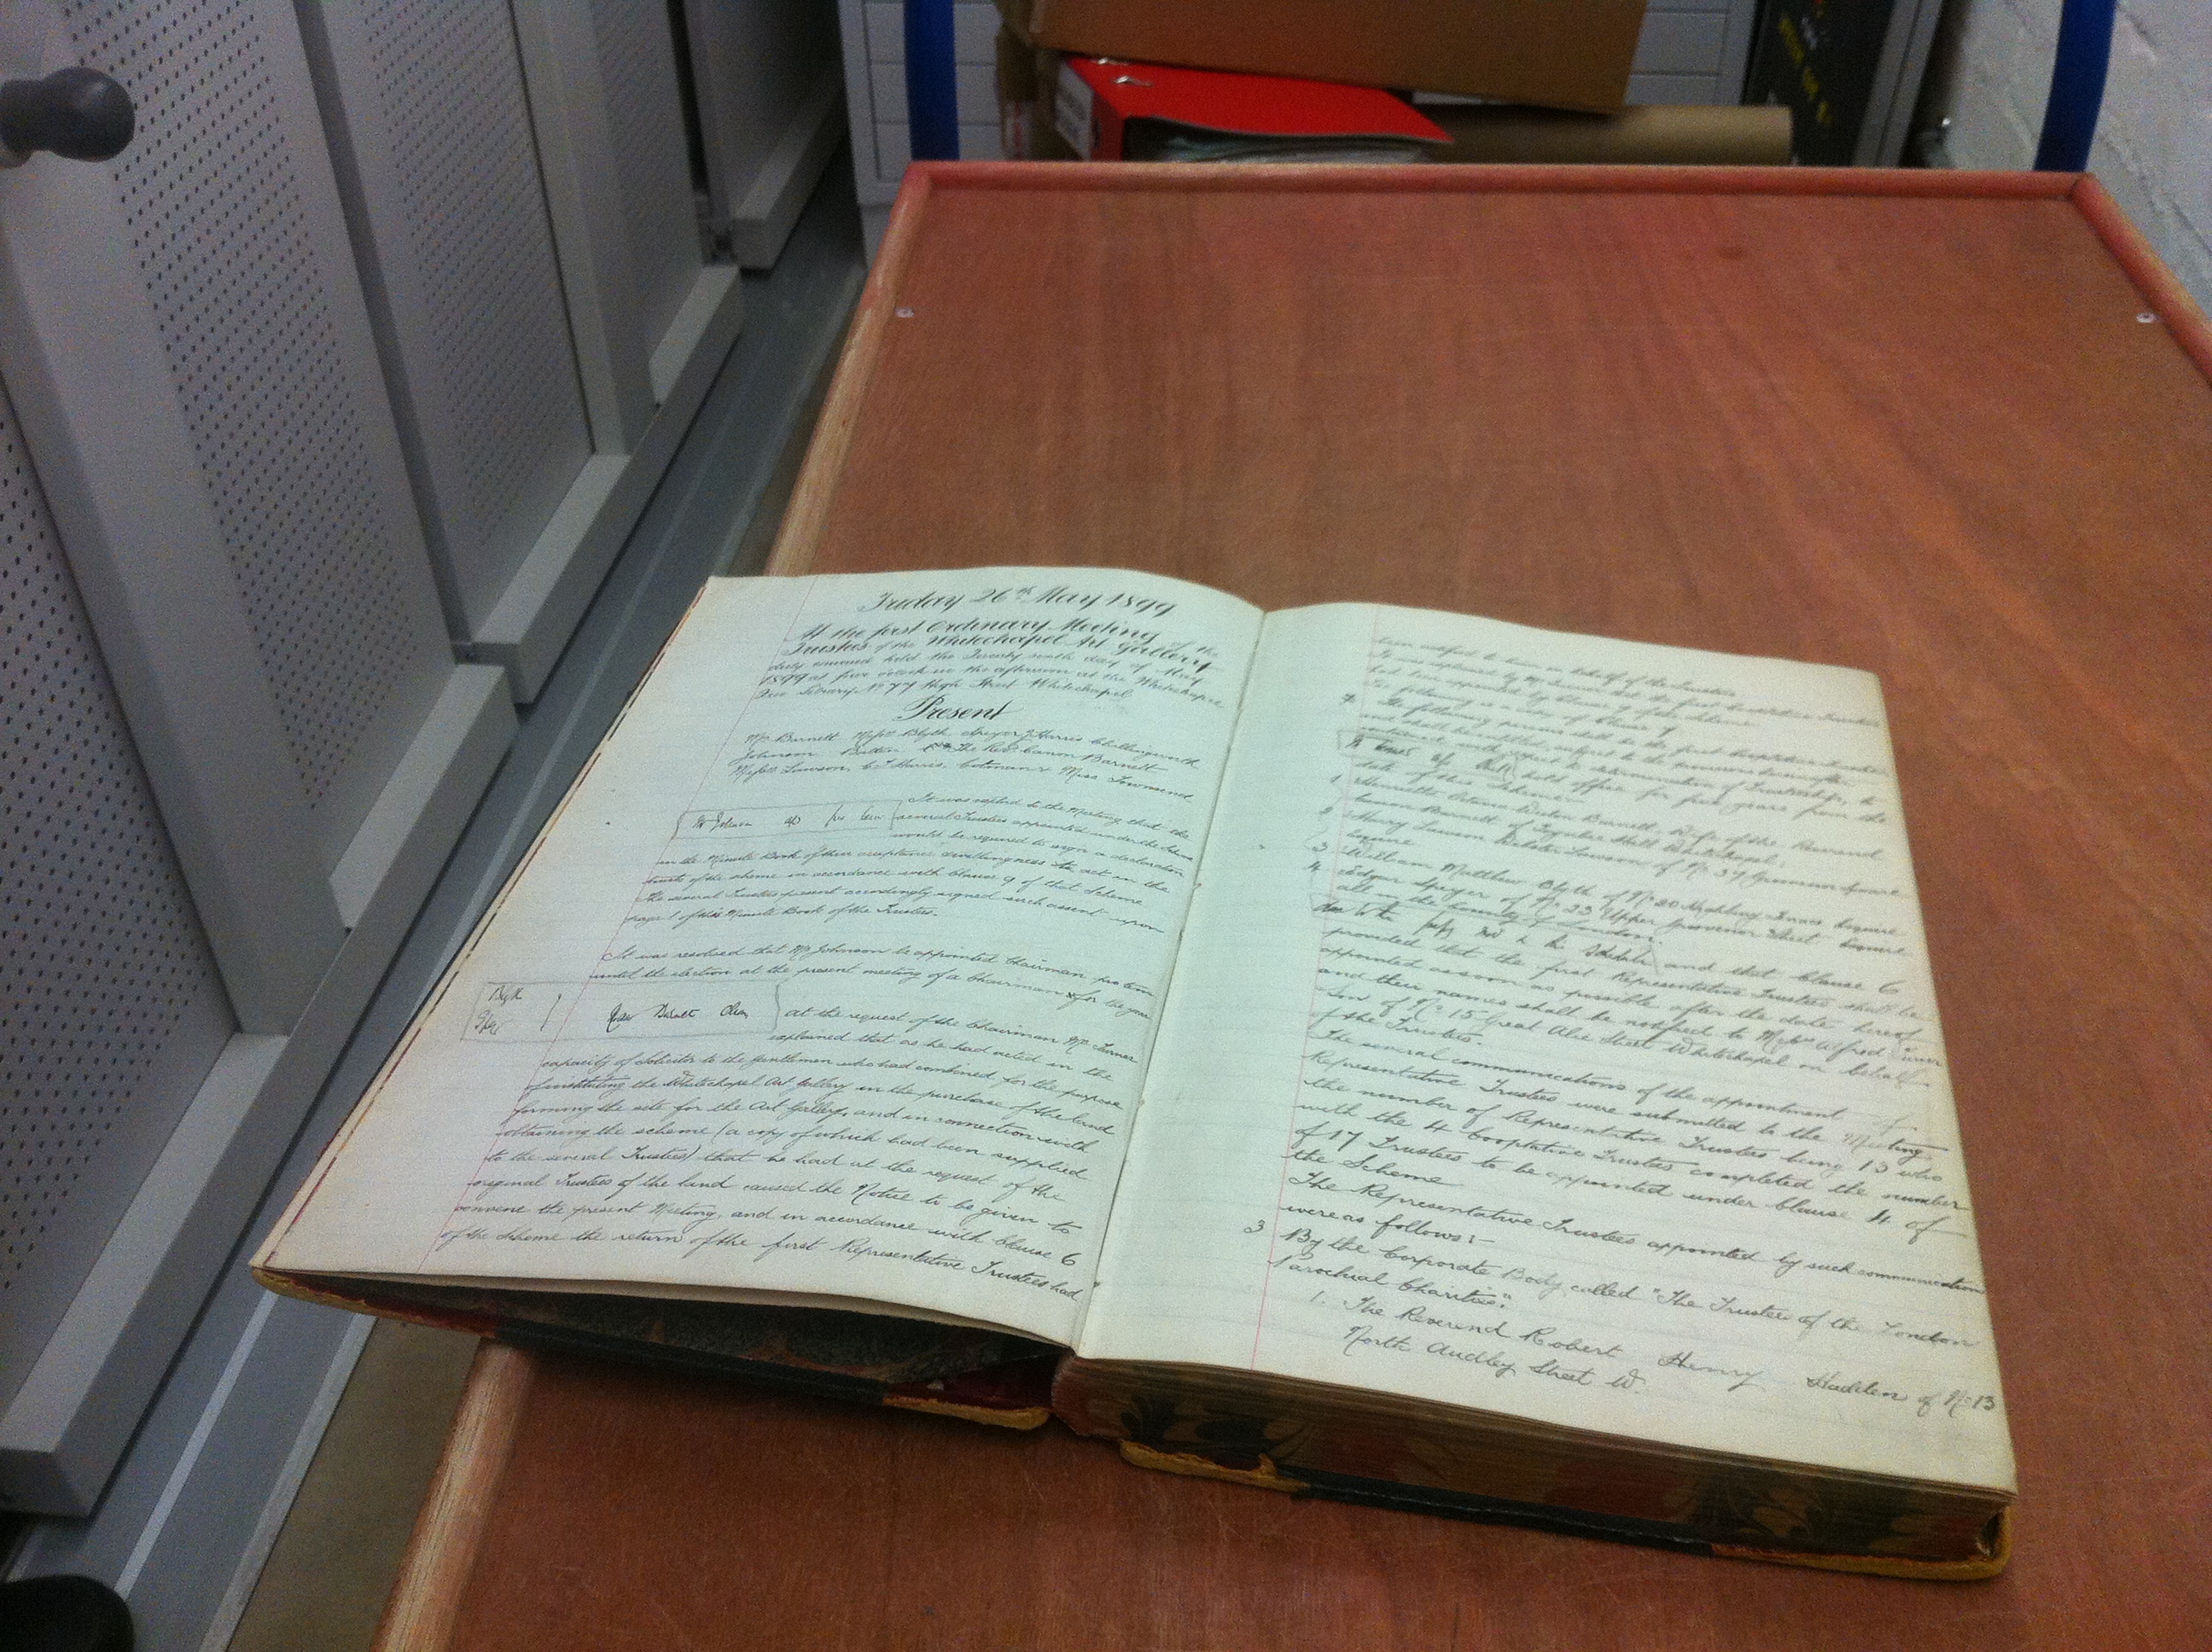 Friday 26th May 1899
At the first Ordinary Meeting of the
Trustees of the Whitechapel Art Gallery
duly convened held the Twenty sixth day of May
1899 at five o'clock in the afternoon at the Whitechapel
Free Library No 77 High Street Whitechapel
Present
Mrs Barnett Messrs Blyth Speyer J Harris Chillingworth
Johnson The Revd Canon Barnett
Messrs Lawson, C J Harris, Cotman & Miss Townsend
It was explained to the Meeting that the
several Trustees appointed under the Scheme
would be required to sign a declaration
in the Minute Book of their acceptance & willingness to act in the
trusts of the scheme in accordance with Clause 9 of that Scheme
The several Trustees present accordingly signed such assent upon
page 1 of this Minute Book of the Trustees.
It was resolved that Mr Johnson be appointed Chairman pro tem
until the election at the present meeting of a Chairman for the year
Blyth
at the request of the Chairman Mr Turner
explained that as he had acted in the
capacity of Solicitor to the gentlemen who had combined for the purpose
of instituting the Whitechapel Art Gallery in the purchase of the land
forming the site for the Art Gallery, and in connection with
obtaining the scheme (a copy of which had been supplied
to the several Trustees) that he had at the request of the
original Trustees of the land caused the Notice to be given to
convene the present Meeting, and in accordance with Clause 6
of the Scheme the return of the first Representative Trustees had
been notified to him on behalf of the Trustees
It was explained by Mr Turner that the first Cooptative Trustees
had been appointed by Clause 7 of the Scheme
The following is a copy of Clause 7
7. The following persons shall be the first Cooptative Trustees
and shall be entitled, subject to the provisions hereinafter
contained with respect to determination of Trusteeship, to
hold office for five years from the
date of this Scheme:
1 Henrietta Octavia Weston Barnett, Wife of the Reverend
Canon Barnett of Toynbee Hall Whitechapel.
2 Harry Lawson Webster Lawson of No 37 Grosvenor Square
Esquire
3 William Matthew Blyth of No 20 Highbury Esquire
4 Edgar Speyer of No 23 Upper Grosvenor Street Esquire
all in the County of London.
and that Clause 6
provided that the first Representative Trustees shall be
appointed as soon as possible after the date hereof
and their names shall be notified to Messrs Alfred Turner
& Son of No 15 Great Alie Street Whitechapel on behalf
of the Trustees.
The several communications of the appointment of
Representative Trustees were submitted to the Meeting
the number of Representative Trustees being 13 who
with the 4 Cooptative Trustees completed the number
of 17 Trustees to be appointed under Clause 4 of
the Scheme
The Representative Trustees appointed by such communication
were as follows:-
3 By the Corporate Body called "The Trustees of the London
Parochial Charities."
1. The Reverend Robert Henry Hadden of No 13
North Audley Street W.